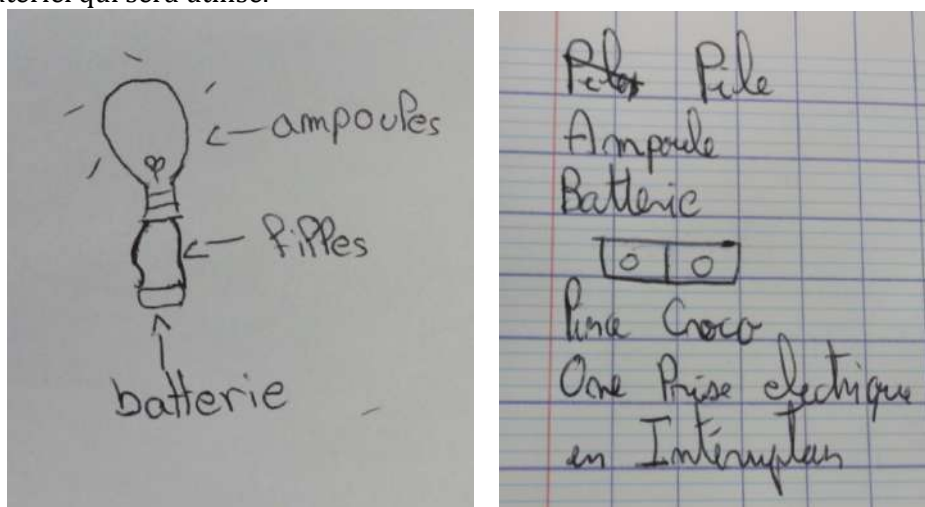 ampoules
fifles
batterie
Pile
Ampoule
Batterie
Pince Croco
One Prise electrique
en Interruptan